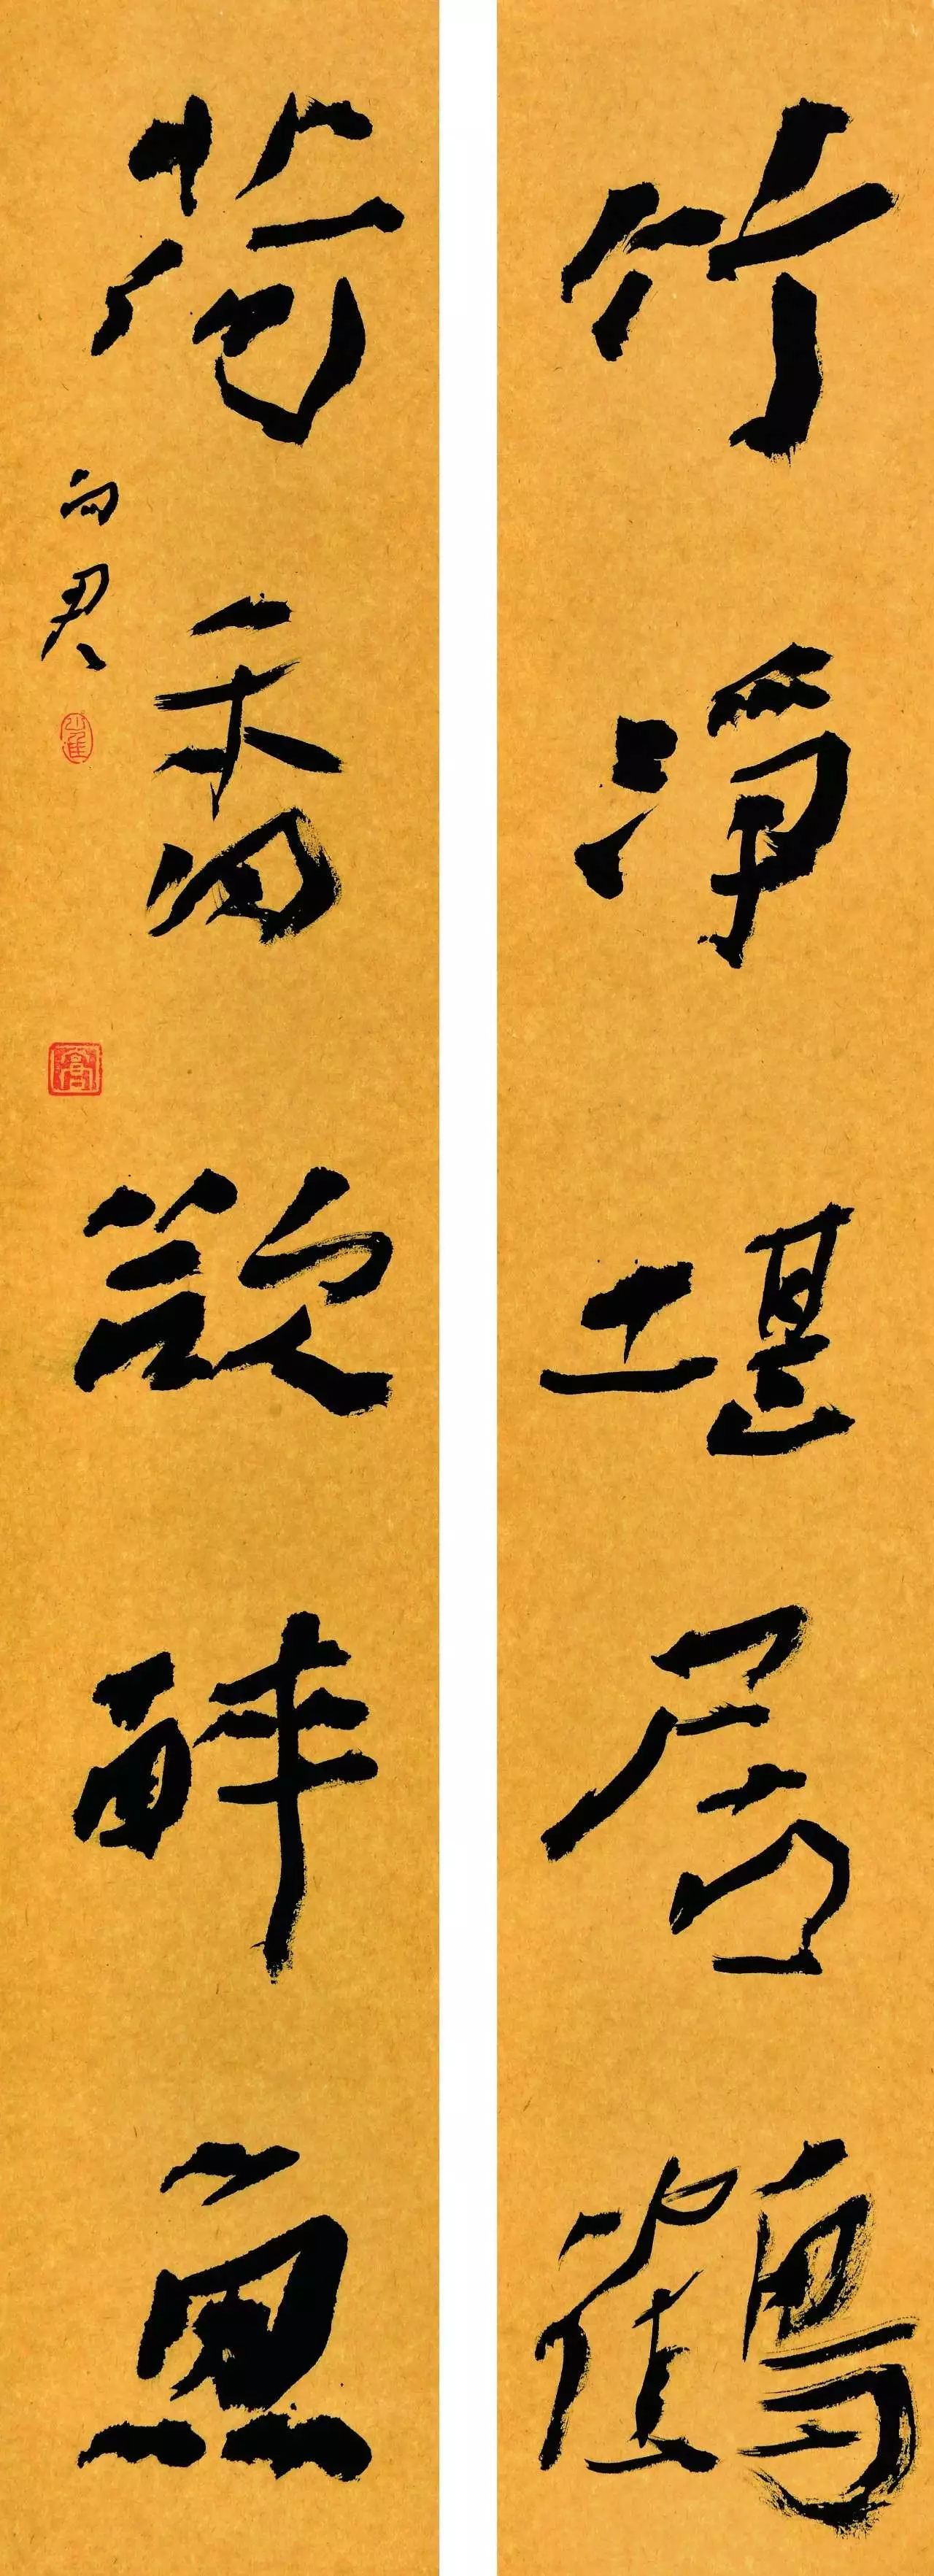 竹淨堪居鶴
荷香欲醉魚
向君